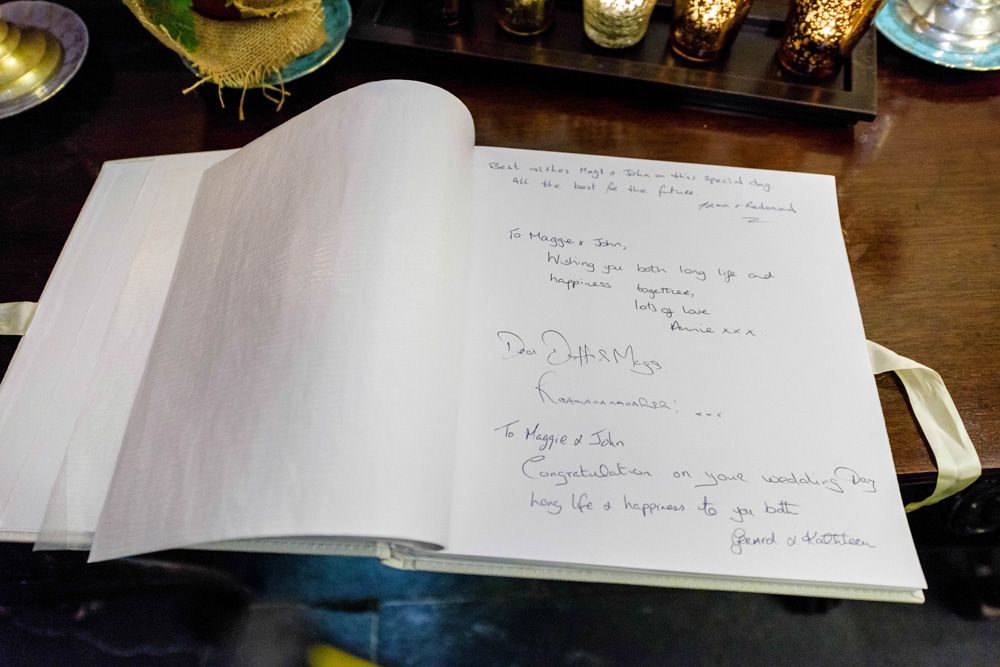 Best wishes Mags & John on this special day
All the best for the future.
& Redmond
To Maggie & John,
Wishing you both long life and
happiness together,
lots of love
Annie x x x.
Dear Duff & Mags
x x x
To Maggie & John
Congratulation on your wedding Day
Long life & happiness to you both
Gerard & Kathleen